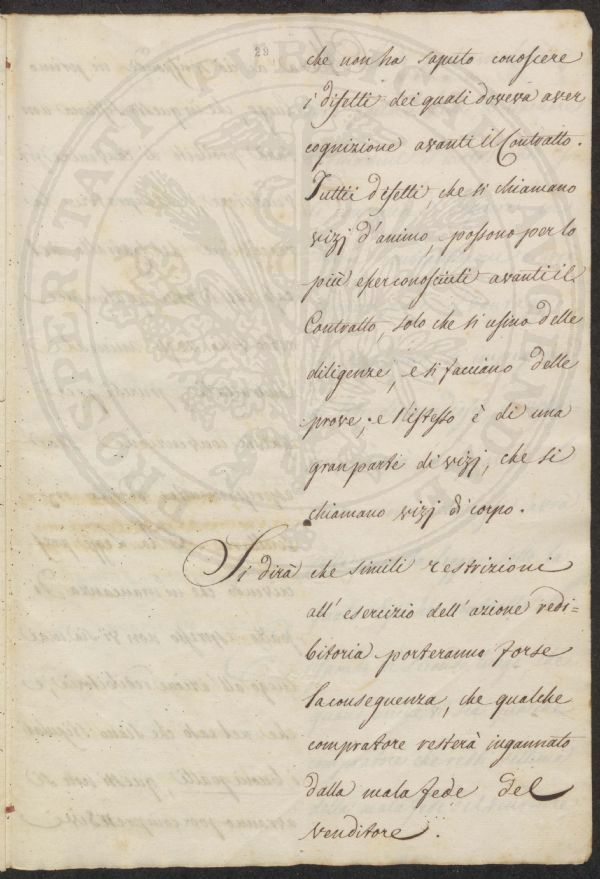 29
che non ha saputo conoscere
i difetti dei quali doveva aver
cognizione avanti il Contratto.
Tutti i difetti, che si chiamano
vizj d'animo, possono per lo
più esser conosciuti avanti il
Contratto, solo che si usino delle
diligenze, e si facciano delle
prove; e l'istesso è di una
gran parte di vizj, che si
chiamano vizj di corpo.
Si dirà che simili restrizioni
all'esercizio dell'azione redi=
bitoria porteranno forse
la conseguenza, che qualche
compratore resterà ingannato
dalla mala fede del
venditore.